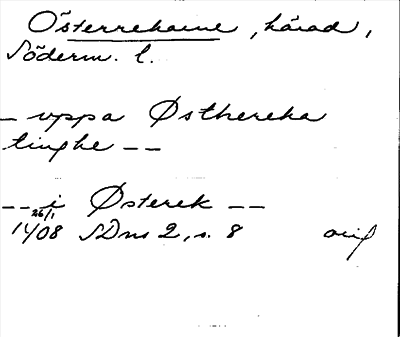 Österrekarne, härad,
Söderm. l.
– vppa Østhereka
tinghe – –
– – i Østerek – –
26/1
1408 SDns 2, s. 8 orig